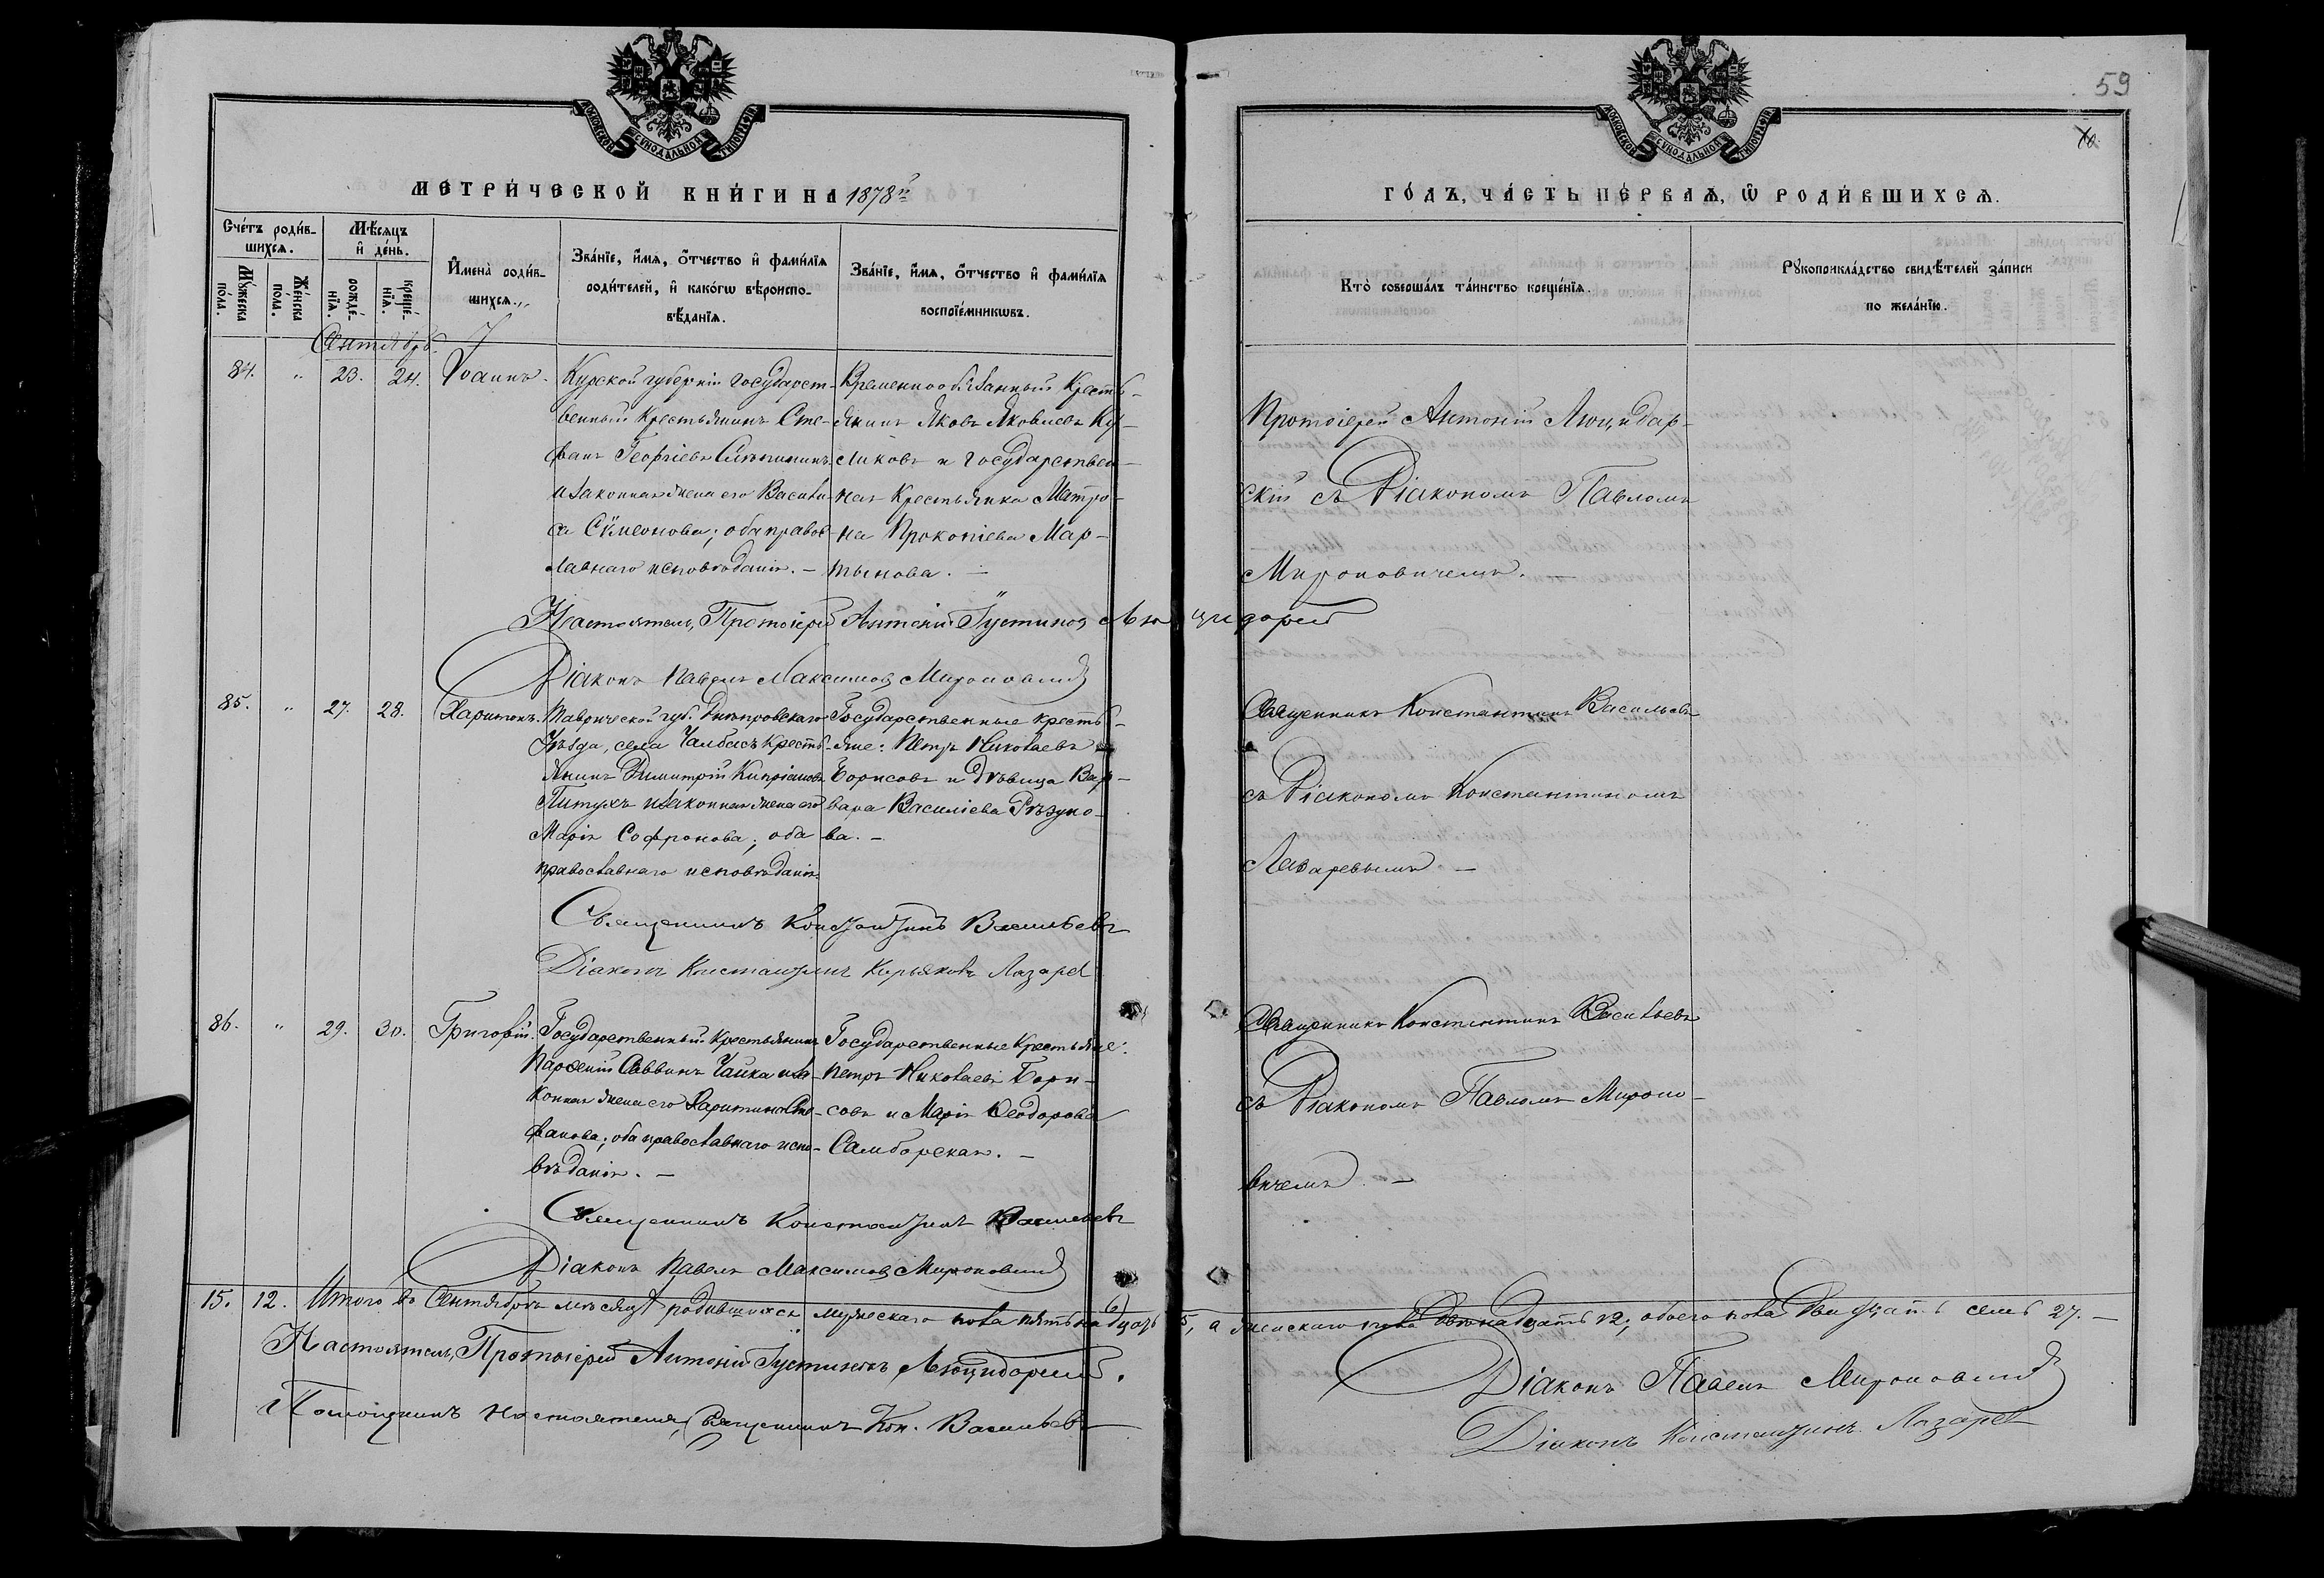 59
МОСКОВСКОЙ СѴНОДАЛЬНОЙ ТИПОГРАФІИ
МОСКОВСКОЙ СѴНОДАЛЬНОЙ ТИПОГРАФІИ
МЕТРИ́ЧЕСКОЙ КНИ́ГИ НА 1878й
ГО́ДЪ, ЧА́СТЬ ПЕ́РВАѦ, Ѿ РОДИ́ВШИХСѦ.
Сче́тъ роди́вшихсѧ.
Мꙋ́жеска по́ла.
Же́нска по́ла.
Мѣ́сяцъ и҆ де́нь.
рожде́нїѧ.
креще́нїѧ.
И҆мена̀ роди́вшихсѧ.
Зва́нїе, и҆́мѧ, ѻ҆́тчество и҆ фами́лїѧ
роди́телей, и҆ како́гѡ вѣроиспо-
вѣ́данїѧ.
Зва́нїе, и҆́мѧ, ѻ҆́тчество и҆ фами́лїѧ
воспрїе́мникѡвъ.
Кто̀ соверша́лъ та́инство креще́нїѧ.
Рꙋкоприкла́дство свидѣ́телей за́писи
по жела́нїю.
Сентябрь.
84. " 23. 24. Іоаннъ.
Курской губерніи государст-
венный крестьянинъ Сте-
фанъ Георгіевъ
и законная жена его Васили-
са Сѵмеонова; оба правос-
лавнаго исповѣданія. –
Временнообязанный кресть-
янинъ Яковъ Яковлевъ Ку-
ликовъ и государствен-
ная крестьянка Матро-
на Прокопіева Мар-
тынова. –
Протоіерей Антоній Люцидар-
скій съ Діакономъ Павломъ
Мироновичемъ. –
Настоятель, Протоіерей Антоній Іустиновъ Люцидарскій
Діаконъ Павелъ Максимовъ Мироновичъ
85. " 27. 28. Харитонъ.
Таврической губ. Днѣпровскаго
Уѣзда, села Чалбасъ кресть-
янинъ Димитрій Кипріановъ
Питухъ и законная жена его
Марія Софронова; оба
православнаго исповѣданія.
Государственные кресть-
яне: Петръ Николаевъ
Борисовъ и дѣвица Вар-
вара Василіева Рѣзуно-
ва. –
Священникъ Константинъ Васильевъ
съ Діакономъ Константиномъ
Лазаревымъ –
Священникъ Константинъ Васильевъ
Діаконъ Константинъ Лазаревъ
86. " 29. 30. Григорій.
Государственный крестьянинъ
Парѳеній Саввинъ Чайка и за-
конная жена его Харитина Сте-
фанова; оба православнаго испо-
вѣданія. –
Государственные крестьяне:
Петръ Николаевъ Бори-
совъ и Марія Ѳеодорова
Самборская. –
Священникъ Константинъ Васильевъ
съ Діакономъ Павломъ Мироно-
вичемъ. –
Священникъ Константинъ Васильевъ
Діаконъ Павелъ Максимовъ Мироновичъ
15. 12. Итого въ Сентябрѣ мѣсяцѣ родившихся мужескаго пола пятьнадцать 15, а женскаго пола двѣнадцать 12, обоего пола двадцать семь 27. –
Настоятель, Протоіерей Антоній Іустиновъ Люцидарскій.
Помощникъ настоятеля, Священникъ Кон. Васильевъ
Діаконъ Павелъ Мироновичъ
Діаконъ Константинъ Лазаревъ